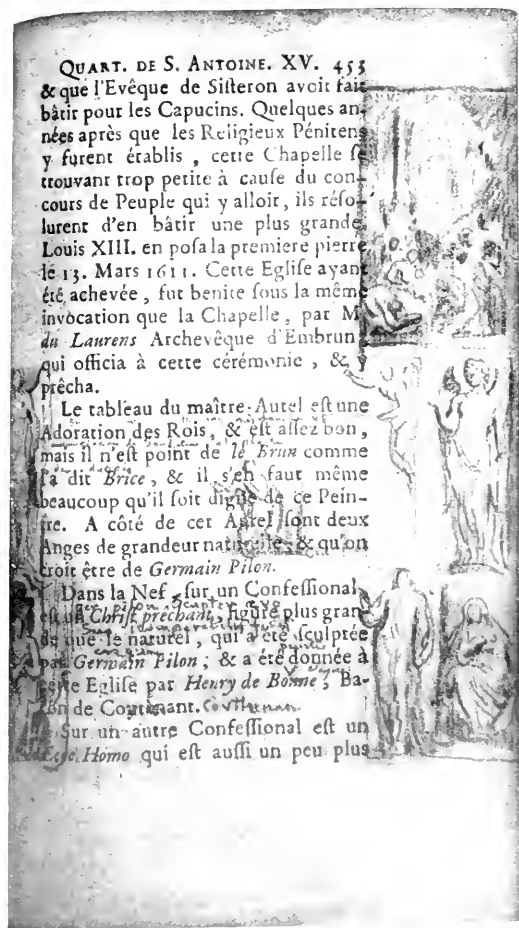 QUART. DE S. ANTOINE. XV. 453
& que l'Evêque de Sisteron avoit fait
bâtir pour les Capucins. Quelques an-
nées après que les Religieux Pénitens
y furent établis , cette Chapelle se
trouvant trop petite à cause du con-
cours de Peuple qui y alloit, ils réso-
lurent d'en bâtir une plus grande.
Louis XIII. en posa la premiere pierre
le 13. Mars 1611. Cette Eglise ayant
été achevée, fut benite sous la même
invocation que la Chapelle, par M.
du Laurens Archevêque d'Embrun
qui officia à cette cérémonie , & y
prêcha.
Le tableau du maître-Autel est une
Adoration des Rois, & est assez bon,
mais il n'est point de le Brun comme
l'a dit Brice, & il s'en faut même
beaucoup qu'il soit digne de ce Pein-
tre. A côté de cet Autel sont deux
Anges de grandeur naturelle, & qu'on
croit être de Germain Pilon.
Dans la Nef, sur un Confessional
est un Christ prêchant, figure plus gran-
de que le naturel, qui a été sculptée
par Germain Pilon; & a été donnée à
cette Eglise par Henry de Bonne, Ba-
ron de Coutenant.
Sur un autre Confessional est un
Ecce Homo qui est aussi un peu plus